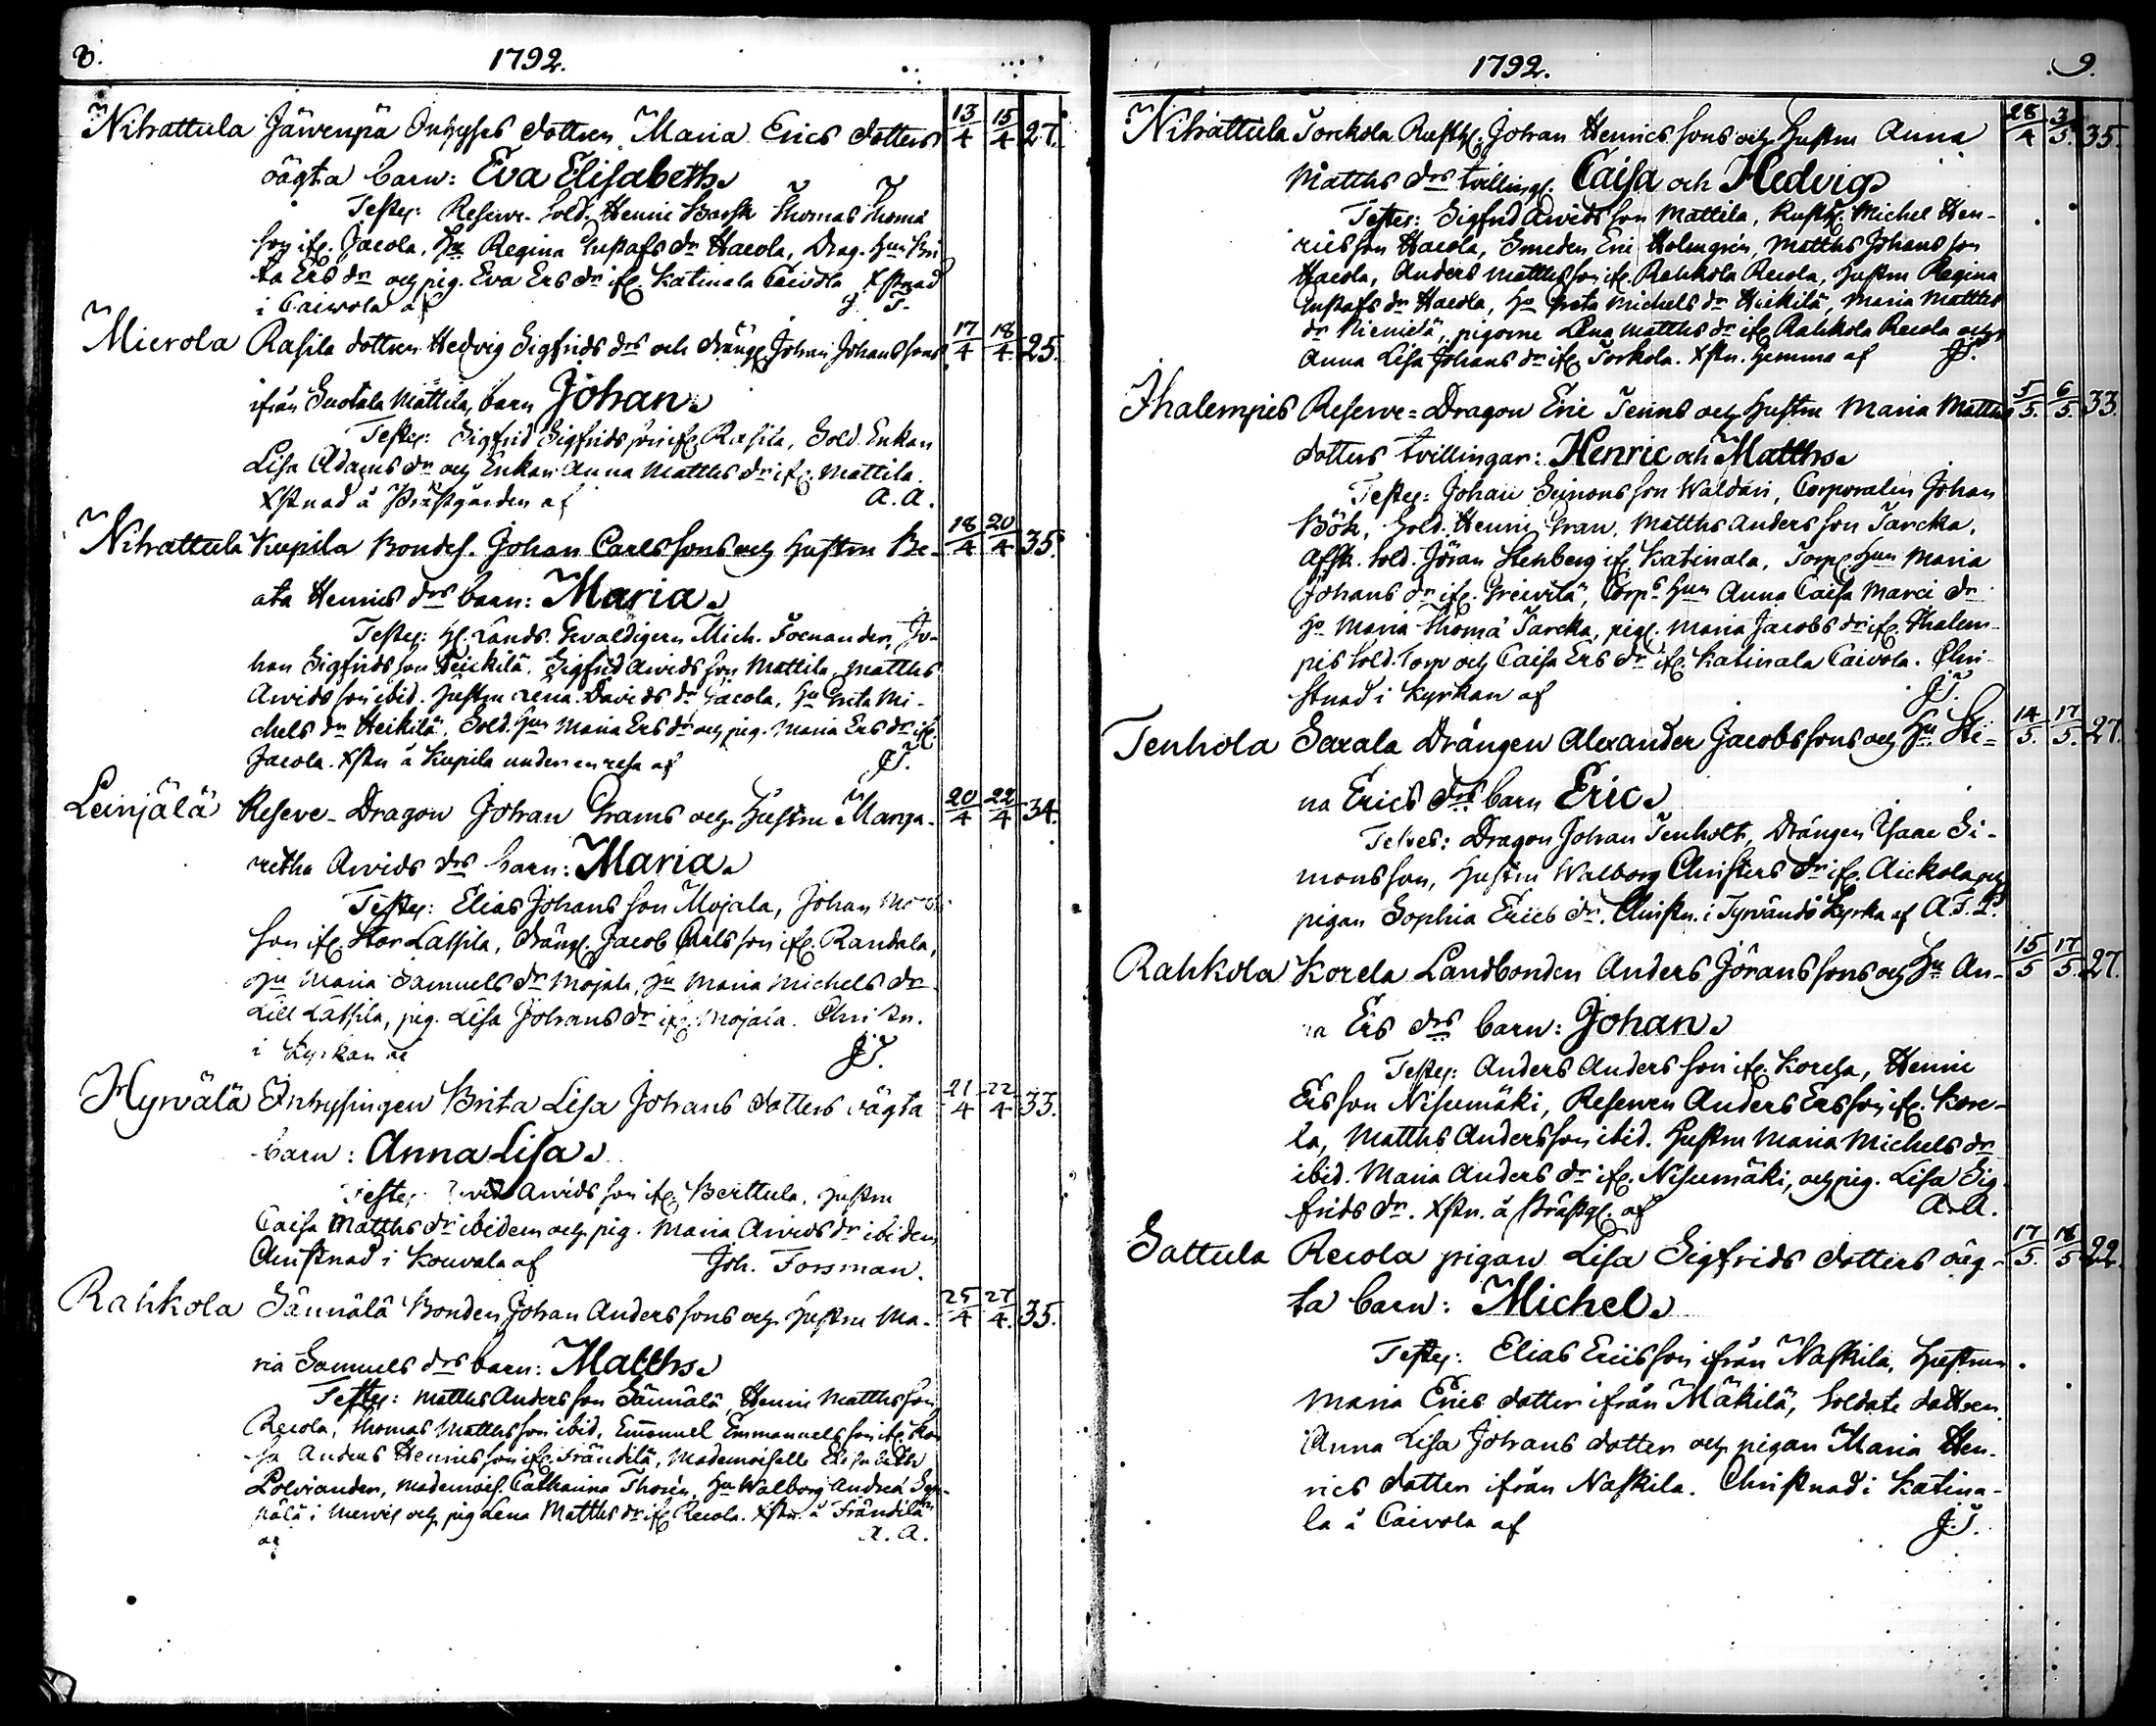 8. 1792.
Nihattula Järvenpä Inhyses dottren Maria Erics dotters 13/4 15/4 27.
oägta barn: Eva Elisabeth
Testes: Reserv. Sold. Henric Barsk Thomas Thomæ
son ifr. Jacola, Hu Regina Gustafs dr Hacola, Drag. Hun Bri
ta Ers dr och pig. Eva Ers dr ifr. Katinala Caivola Xstnad
i Caivola af J. T.
Mierola Rasila dottren Hedvig Sigfrids drs och dräng. Johan Johans sons 17/4 18/4 25.
ifrån Suotala Mattila, barn Johan
Testes: Sigfrid Sigfrids son ifr. Rasila, Sold. Enkan
Lisa Adams dr och Enkan Anna Matths dr ifr. Mattila.
Xstnad å Prästgården af A. A.
Nihattula Kupila Bondes. Johan Carls sons och hustru Be- 18/4 20/4 35.
ata Henrics drs barn: Maria
Testes: H. Lands Gevaldigern Mich. Foenander, Jo-
han Sigfrids son Heickilä, Sigfrid Arvids son Mattila, Matths
Arvids son ibid. Hustru Lena Davids dr Jacola, Hu Greta Mi-
chels dr Heikilä, Sold. Hun Maria Ers dr och pig. Maria Ers dr ifr.
Jacola. Xstn å Kupila under en resa af JT.
Leinjälä Reserve-Dragon Johan Grams och Hustru Marga- 20/4 22/4 34.
retha Arvids drs barn: Maria
Testes: Elias Johans son Mojala, Johan
son ifr. Stor Lassila, dräng. Jacob Carls son ifr. Randala,
Hu Maria Samuels dr Mojala, Hu Maria Michels dr
Lill Lassila, pig. Lisa Johans dr ifr. Mojala. Christn.
i Kyrkan af JT.
Hyrvälä Inhysingen Brita Lisa Johans dotters oägta 21/4 22/4 33.
barn: Anna Lisa
Testes: Arvids son ifr. Berttula, hustru
Caisa Matths dr ibidem och pig. Maria Arvids dr ibidem
Christnad i Kouvala af Joh. Forsman.
Rahkola Sännälä Bonden Johan Anders sons och hustru Ma- 25/4 27/4 35.
ria Samuels drs barn: Matths
Testes: Matths Anders son Sännälä, Henric Matths son
Recola, Thomas Matths son ibid. Emanuel Emmanuels son ifr.
Anders Henrics son ifr. Frändilä, Mademoiselle Elisabeth
Polviander, Mademois. Catharina Thorén, Hu Walborg Andreæ
nälä i Mervis och pig Lena Matths dr ifr. Recola. Xstn. å Frändilä
af A. A.
1792. 9.
Nihattula Torckola Rusth. Johan Henrics sons och hustru Anna 28/4 3/5 35.
Matths drs tvilling. Caisa och Hedvig
Testes: Sigfrid Arvids son Mattila, Rusth. Michel Hen-
rics son Hacola, Smeden Eric Holmgrén, Matths Johans son
Hacola, Anders Matths son ifr. Rahkola Recola, hustru Regina
Gustafs dr Hacola, Hu Greta Michels dr Heikilä, Maria Matths
dr Niemelä, pigorne Lena Matths dr ifr. Rahkola Recola och
Anna Lisa Johans dr ifr. Torkola. Xstn. hemma af JT.
Ihalempies Reserve-Dragon Eric Tenns och Hustru Maria Matths 5/5. 6/5. 33.
dotters tvillingar: Henric och Matths
Testes: Johan Simons son Waldari, Corporalen Johan
Böök, Sold. Henric Gran, Matths Anders son Tarcka,
Afsk. Sold. Jöran Stenberg ifr. Katinala, Torp. Hun Maria
Johans dr ifr. Greivilä, Corps Hun Anna Caisa Marci dr
Hu Maria Thomæ Tarcka, pig. Maria Jacobs dr ifr. Ihalem-
pis Sold. Torp och Caisa Ers dr ifr. Katinala Caivola. Chri-
stnad i Kyrkan af JT.
Tenhola Saxala Drängen Alexander Jacobs sons och Hu Sti- 14/5. 17/5. 27.
na Erics drs barn Eric
Testes: Dragon Johan Tenholt, Drängen Isaac Si-
mons son, hustru Walborg Christers dr ifr. Aickola och
pigan Sophia Erics dr. Christn. i Tyrvändö Kyrka af A.F.P.
Rahkola Korela Landbonden Anders Jörans sons och Hu An- 15/5 17/5. 27.
na Ers drs barn: Johan
Testes: Anders Anders son ifr. Korela, Henric
Ers son Nisumäki, Reserven Anders Ers son ifr. Kore-
la, Matths Anders son ibid. Hustru Maria Michels dr
ibid. Maria Anders dr ifr. Nisumäki, och pig. Lisa Sig-
frids dr. Xstn. å Prästg. af A. A.
Sattula Recola pigan Lisa Sigfrids dotters oäg- 17/5. 18/5 22.
ta barn: Michel
Testes: Elias Erics son ifrån Naskila, Hustrun
Maria Erics dotter ifrån Mäkilä, Soldate dottren
Anna Lisa Johans dotter och pigan Maria Hen-
rics dotter ifrån Naskila. Christnad i Katina-
la å Caivola af J.T.